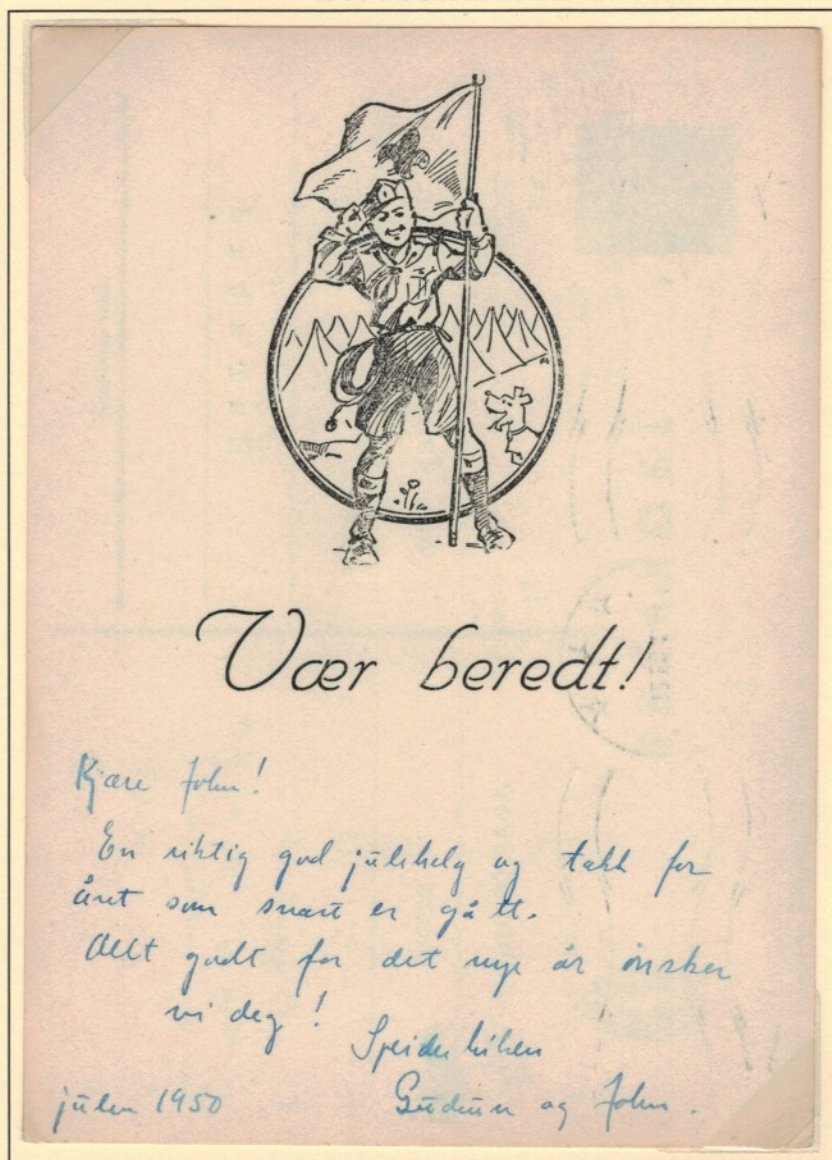 Vær beredt!
Kjære John!
En riktig god julehelg og takk for
året som snart er gått.
Allt godt for det nye år ønsker
vi deg!
Speiderhilsen
julen 1950 Gudrun og John.